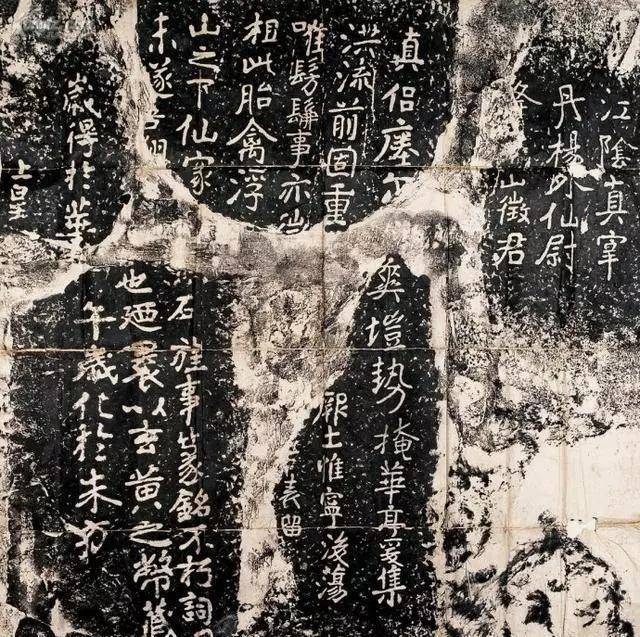 上皇
歲得於華
午歲化於朱方
未遂吾翔
也廼裹以玄黃之幣藏
山之下仙家
石旌事篆銘不朽詞
相此胎禽浮
表留
唯髣髴事亦
厥土惟寧後蕩
洪流前固重
爽塏勢掩華亭爰集
真侶瘞爾
山徵君
丹楊外仙尉
江陰真宰